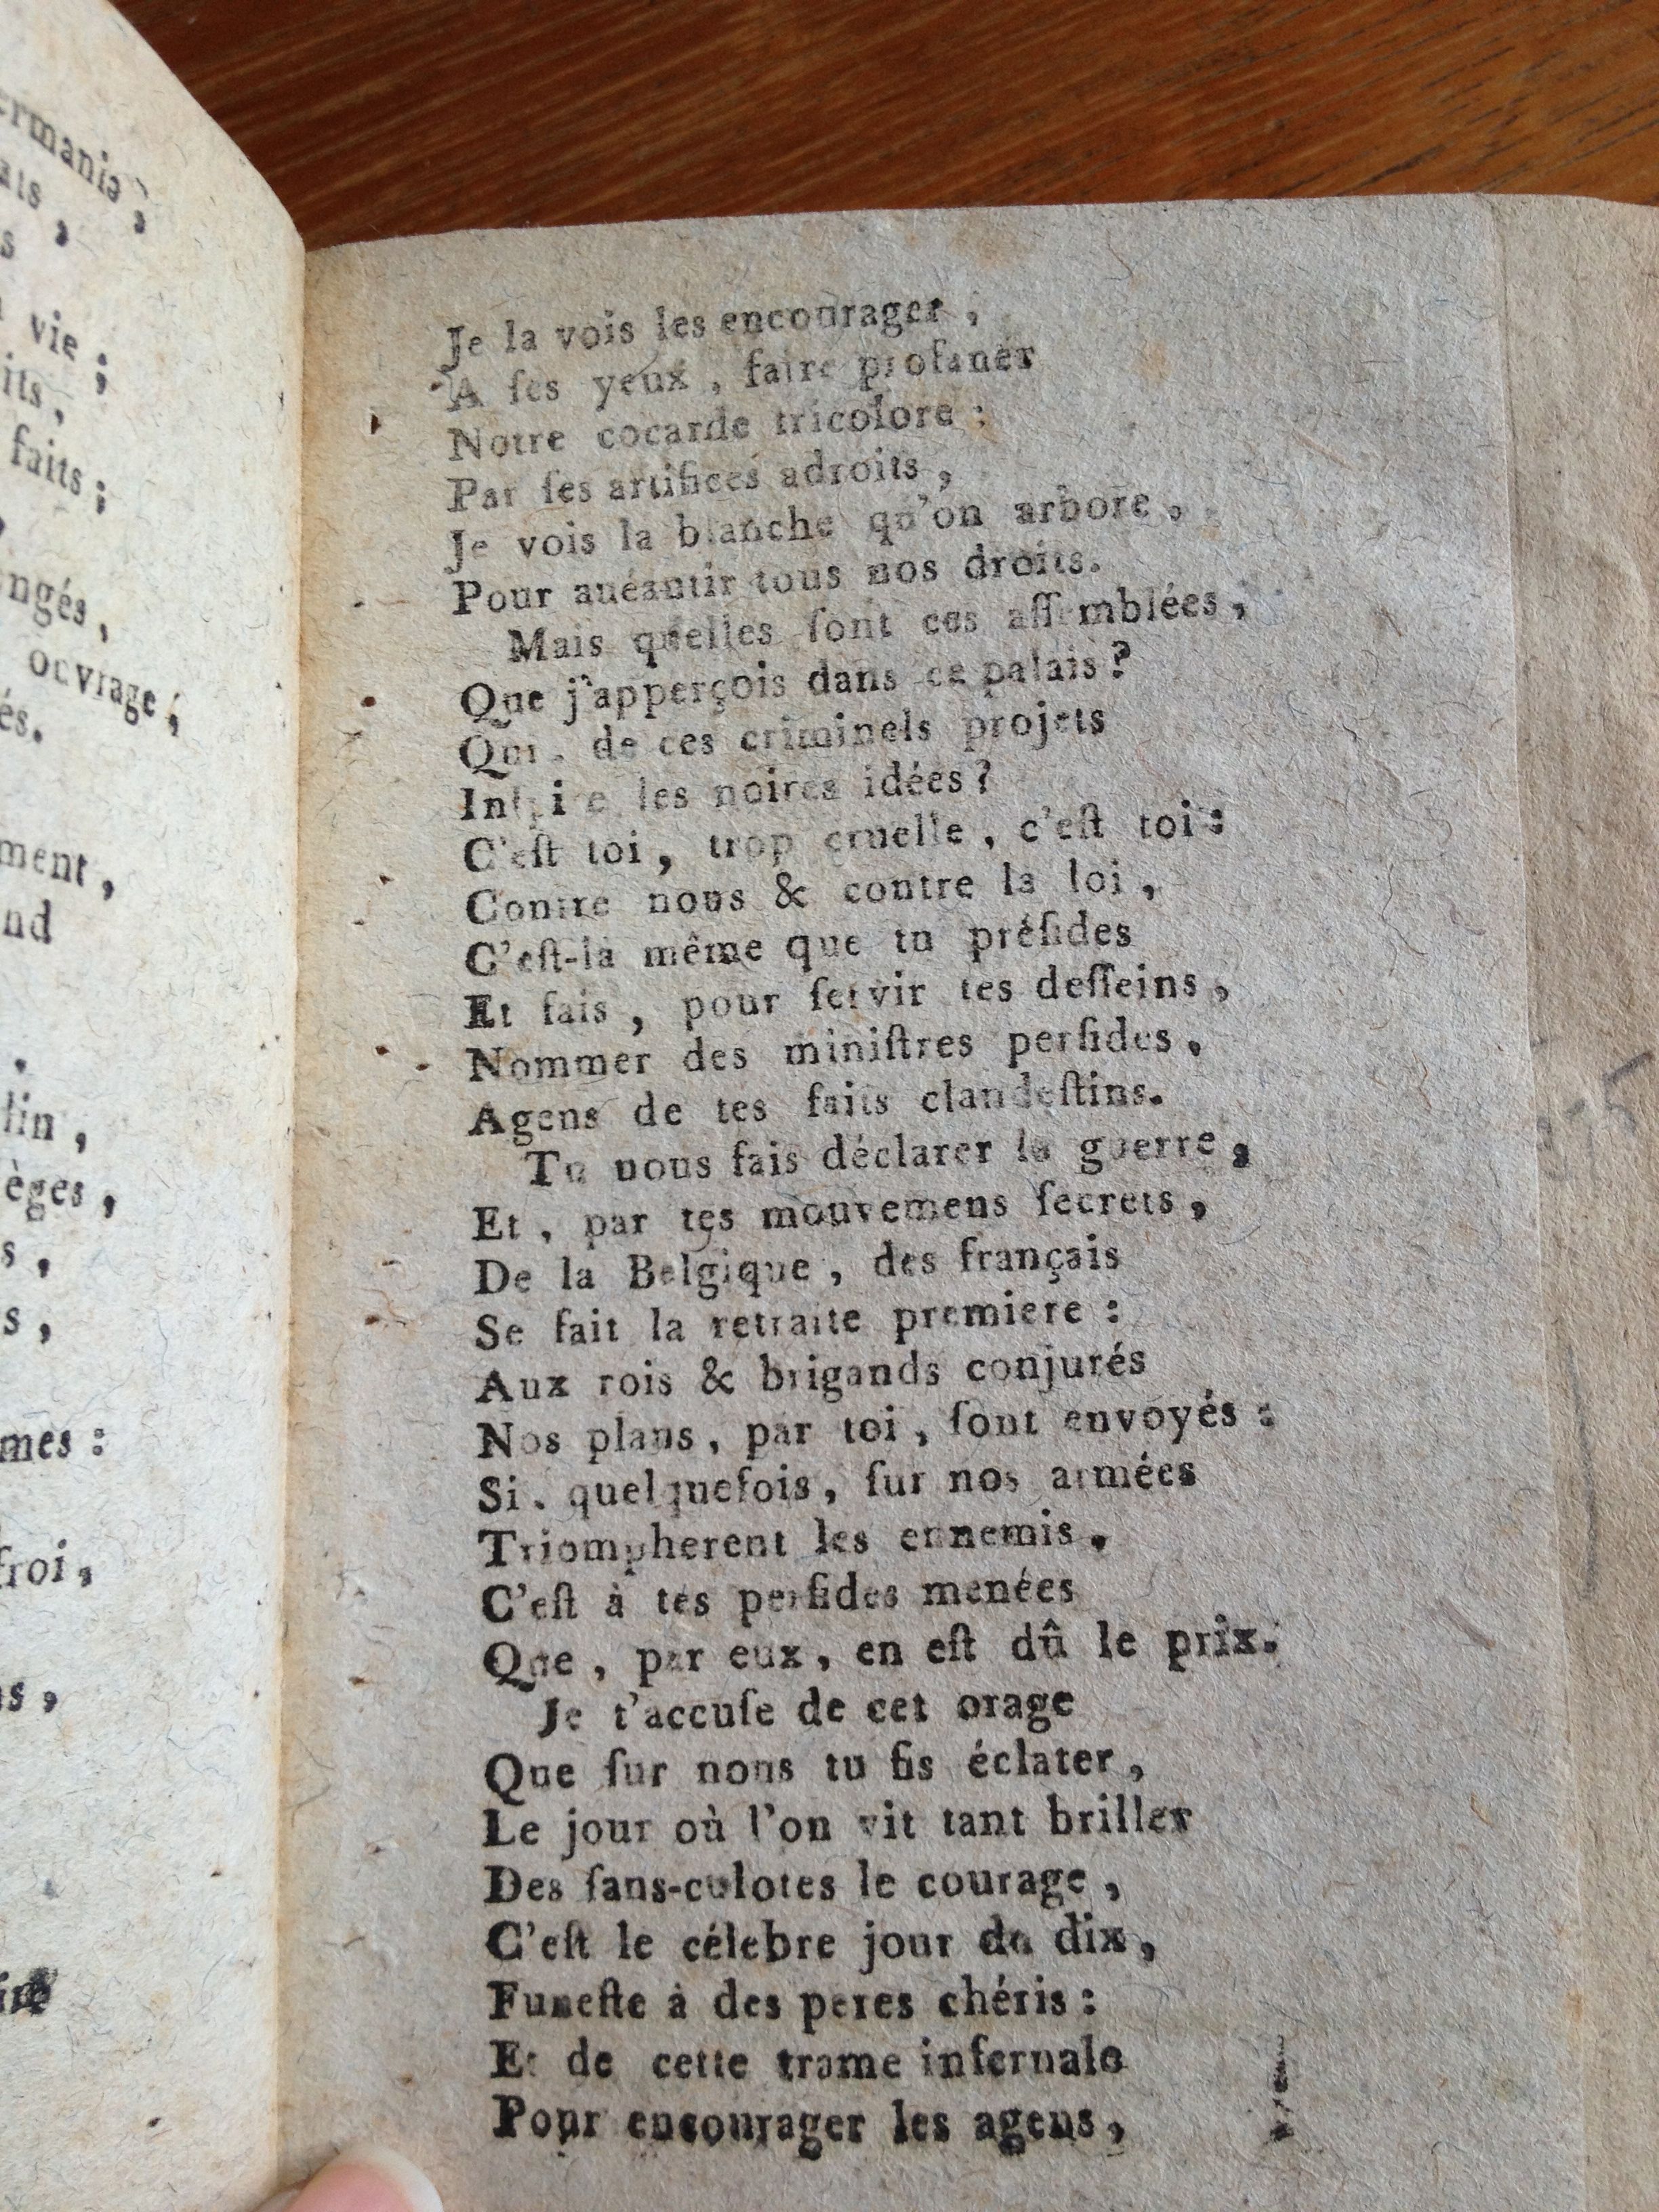 ermanie,
ats,
s
vie;
its,
faits;
ongés,
ouvrage,
és.
ment,
nd
lin,
èges,
s,
s,
mes:
froi,
s,
Je la vois les encourager,
A ſes yeux, faire profaner
Notre cocarde tricolore:
Par ſes artifices adroits,
Je vois la blanche qu'on arbore,
Pour anéantir tous nos droits.
Mais quelles ſont ces aſſemblées,
Que j'apperçois dans ce palais?
Qui, de ces criminels projets
Inſpire les noires idées?
C'eſt toi, trop cruelle, c'eſt toi:
Contre nous & contre la loi,
C'eſt-là même que tu préſides
Et fais, pour ſervir tes deſſeins,
Nommer des miniſtres perfides,
Agens de tes faits clandeſtins.
Tu nous fais déclarer la guerre,
Et, par tes mouvemens ſecrets,
De la Belgique, des français
Se fait la retraite premiere:
Aux rois & brigands conjurés
Nos plans, par toi, ſont envoyés:
Si, quelquefois, ſur nos armées
Triompherent les ennemis,
C'eſt à tes perfides menées
Que, par eux, en eſt dû le prix.
Je t'accuſe de cet orage
Que ſur nous tu fis éclater,
Le jour où l'on vit tant briller
Des ſans-culotes le courage,
C'eſt le célebre jour du dix,
Funeſte à des peres chéris:
Et de cette trame infernale
Pour encourager les agens,